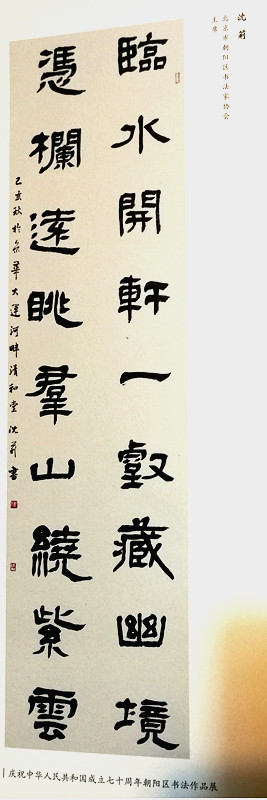 沈莉
北京市朝阳区书法家协会
主席
臨水開軒一壑藏幽境
憑欄遠眺羣山繞紫雲
己亥秋於京華大運河畔清和堂沈莉書
庆祝中华人民共和国成立七十周年朝阳区书法作品展